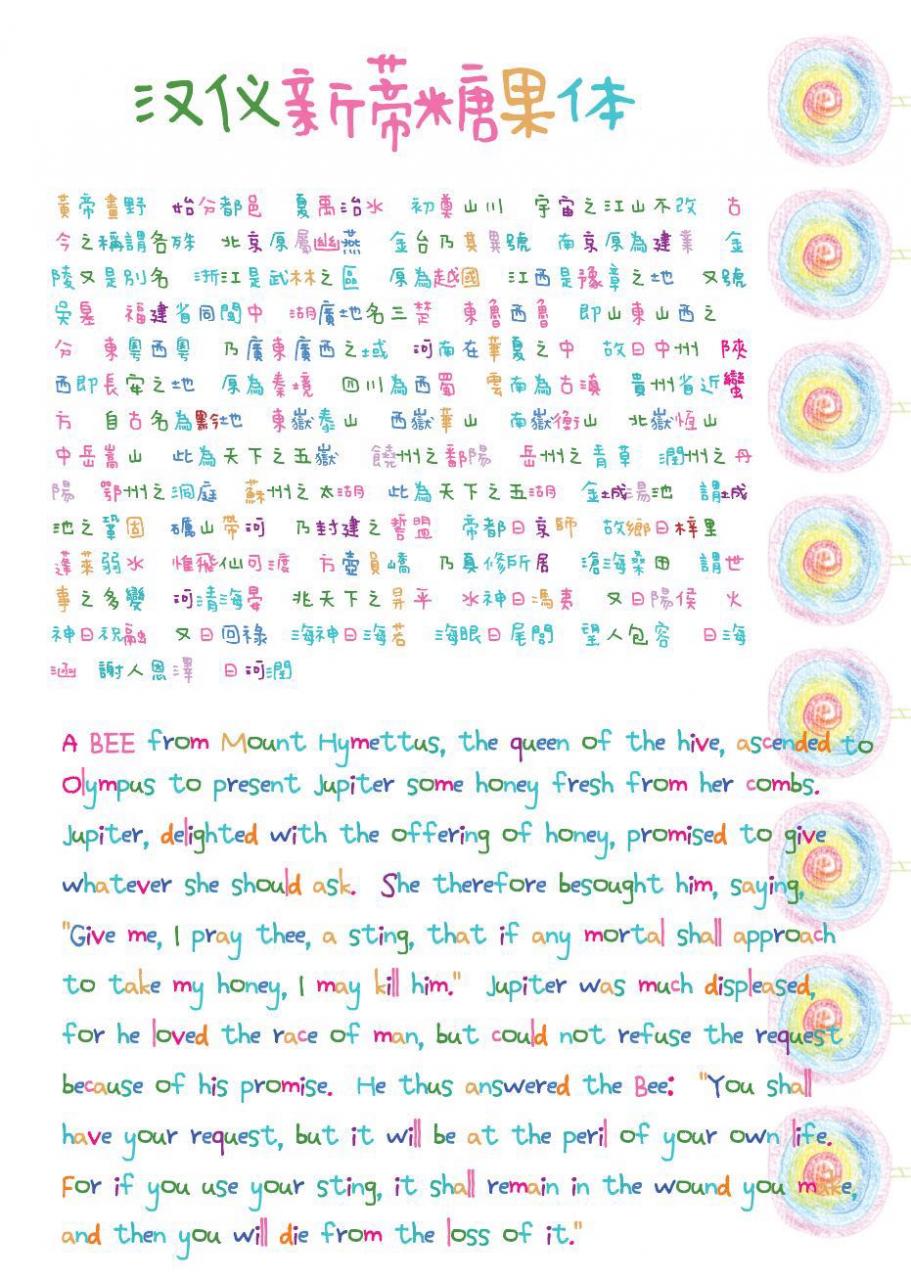 汉仪新蒂糖果体
黃帝畫野 始分都邑 夏禹治水 初奠山川 宇宙之江山不改 古
今之稱謂各殊 北京原屬幽燕 金台乃其異號 南京原為建業 金
陵又是別名 浙江是武林之區 原為越國 江西是豫章之地 又號
吳皋 福建省同閩中 湖廣地名三楚 東魯西魯 即山東山西之
分 東粵西粵 乃廣東廣西之域 河南在華夏之中 故曰中州 陝
西即長安之地 原為秦境 四川為西蜀 雲南為古滇 貴州省近蠻
方 自古名為黔地 東嶽泰山 西嶽華山 南嶽衡山 北嶽恆山
中岳嵩山 此為天下之五嶽 饒州之鄱陽 岳州之青草 潤州之丹
陽 鄂州之洞庭 蘇州之太湖 此為天下之五湖 金城湯池 謂城
池之鞏固 礪山帶河 乃封建之誓盟 帝都曰京師 故鄉曰梓里
蓬萊弱水 惟飛仙可渡 方壺員嶠 乃真修所居 滄海桑田 謂世
事之多變 河清海晏 兆天下之昇平 水神曰馮夷 又曰陽侯 火
神曰祝融 又曰回祿 海神曰海若 海眼曰尾閭 望人包容 曰海
涵 謝人恩澤 曰河潤
A BEE from Mount Hymettus, the queen of the hive, ascended to
Olympus to present Jupiter some honey fresh from her combs.
Jupiter, delighted with the offering of honey, promised to give
whatever she should ask. She therefore besought him, saying,
"Give me, I pray thee, a sting, that if any mortal shall approach
to take my honey, I may kill him." Jupiter was much displeased,
for he loved the race of man, but could not refuse the request
because of his promise. He thus answered the Bee: "You shall
have your request, but it will be at the peril of your own life.
For if you use your sting, it shall remain in the wound you make,
and then you will die from the loss of it."